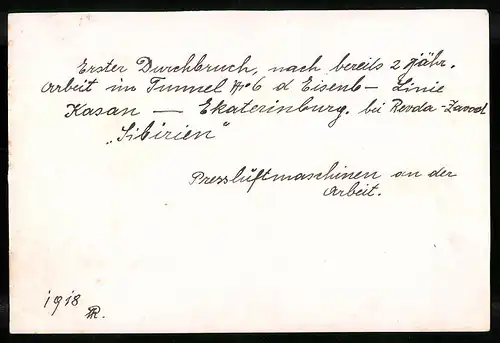 Erster Durchbruch, nach bereits 2 jähr.
Arbeit im Tunnel № 6 d Eisenb – Linie
Kasan — Ekaterinburg. bei Revda-Zavod
„Sibirien"
Pressluftmaschinen an der
Arbeit.
1918
R.